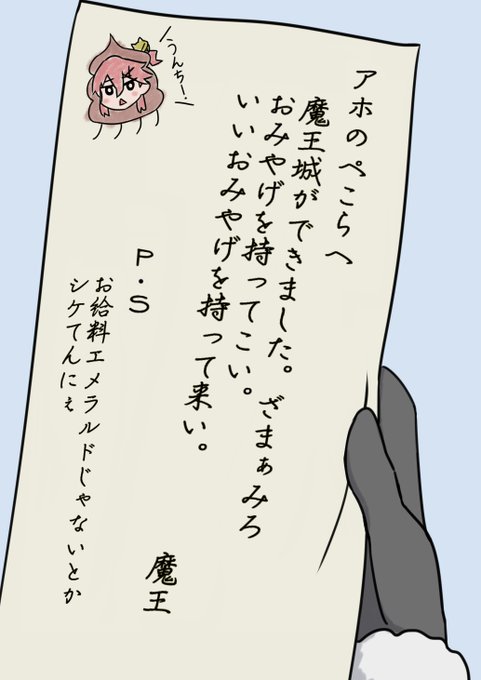 うんちー
アホのぺこらへ
魔王城ができました。ざまぁみろ
おみやげを持ってこい。
いいおみやげを持って来い。
P.S
お給料エメラルドじゃないとか
シケてんにぇ
魔王